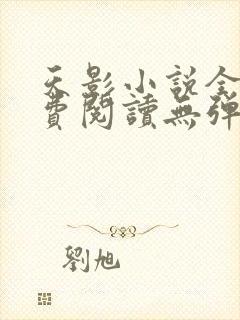 天影小說全
費閱讀無彈
劉旭